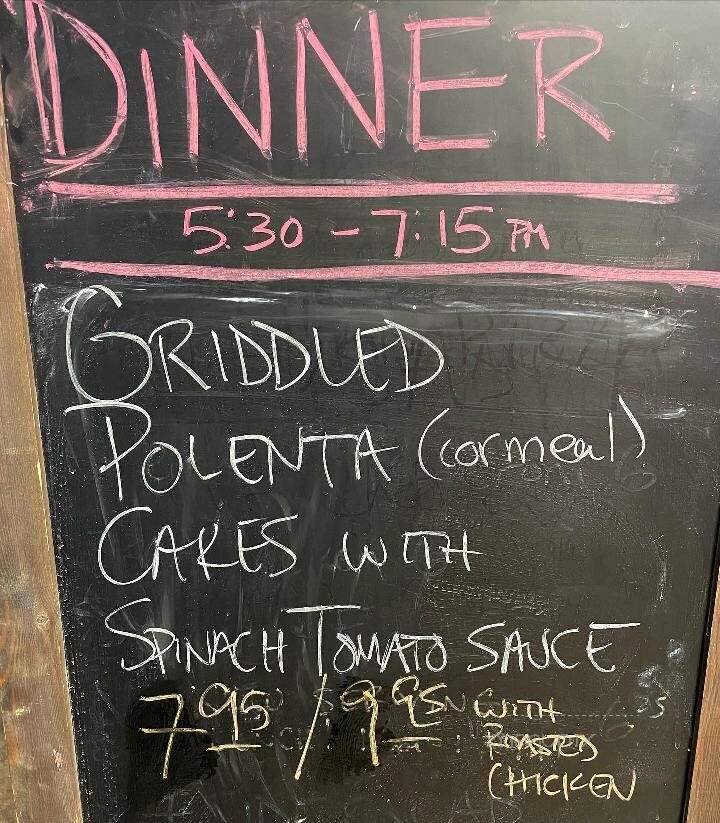 DINNER
5:30 - 7:15 PM
GRIDDLED
POLENTA (cornmeal)
CAKES WITH
SPINACH TOMATO SAUCE
7.95 / 9.95 WITH
ROASTED
CHICKEN